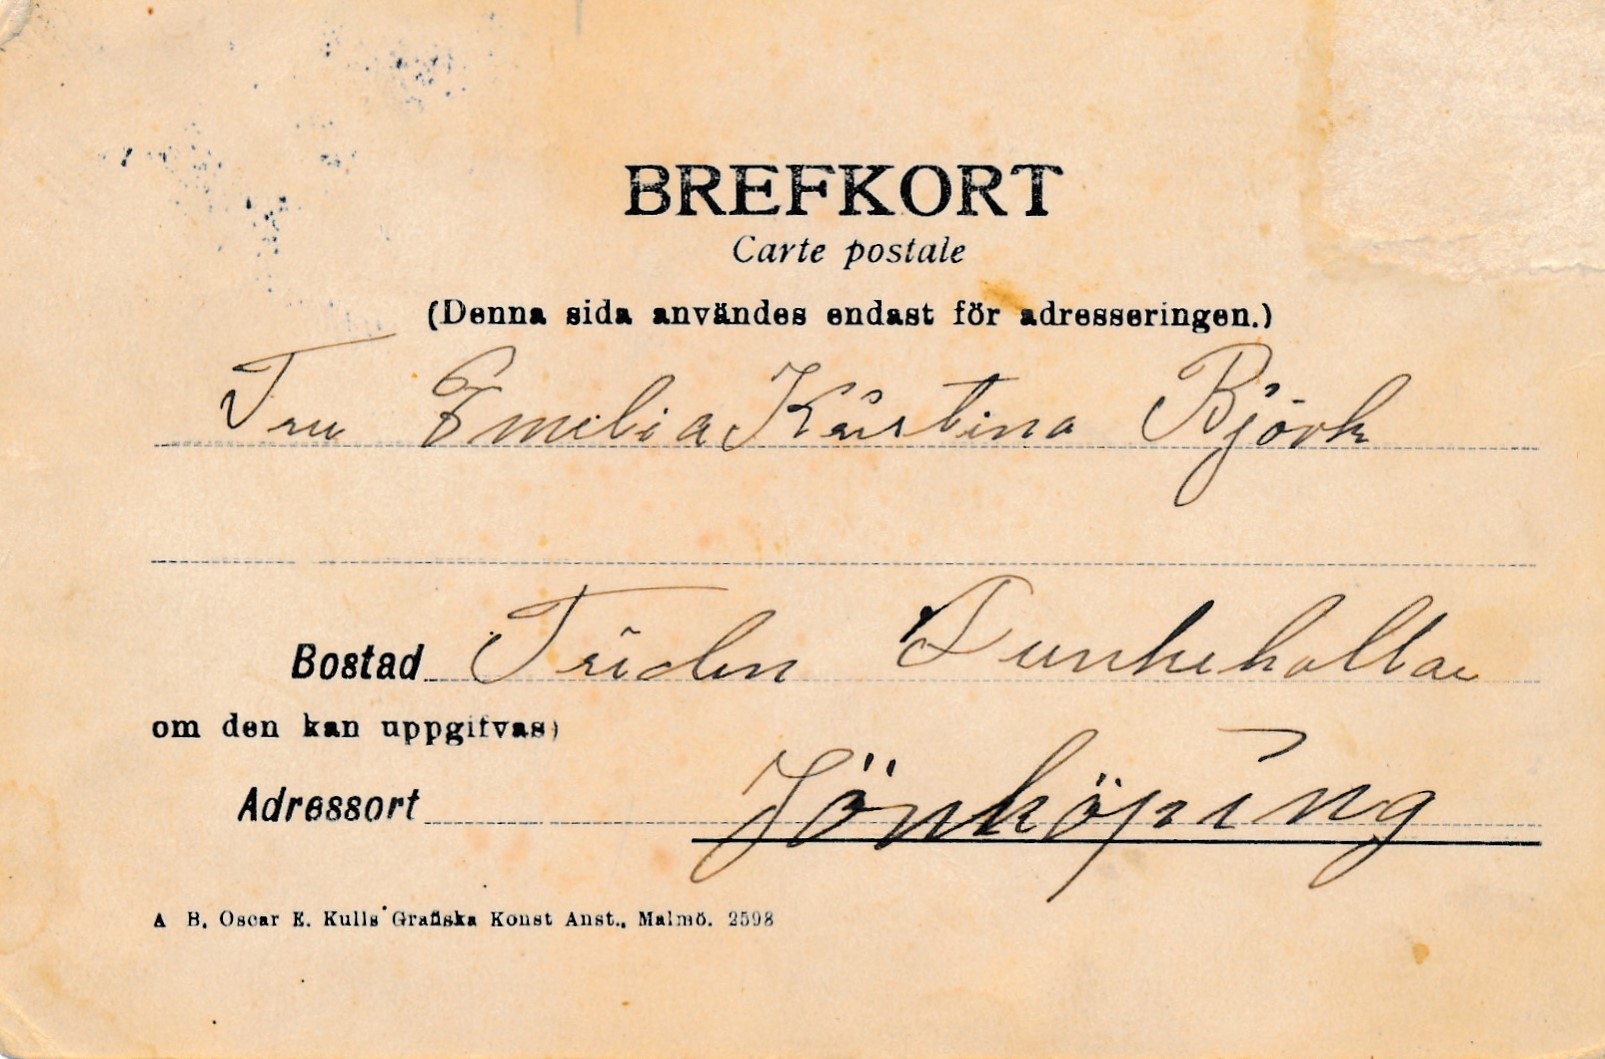 BREFKORT
Carte postale
(Denna sida användes endast för adresseringen.)
Fru Emilia Kristina Björk
Bostad Friden Dunkehallar
om den kan uppgifvas)
Adressort Jönköping
A B. Oscar E. Kulls Grafiska Konst Anst., Malmö. 2598